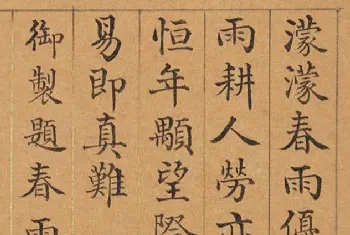 濛濛春雨優
雨耕人勞亦
恒年顒望際
易即真難
御製題春雨